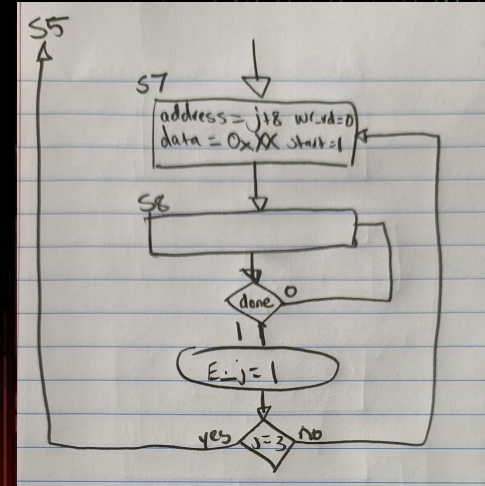 S5
S7
address = j+8 wr_rd=0
data = 0xXX start=1
S8
done
0
1
E_j = 1
yes j=3 no